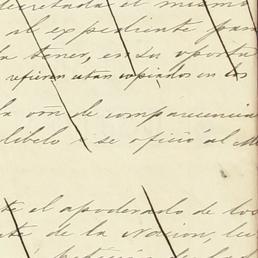 decretada el mismo
al expediente para
la tener, en su oportu
refieren estan copiados en los
la orn de comparecencia
libelo i se ofició al
te el apoderado de los
te de la Nacion,